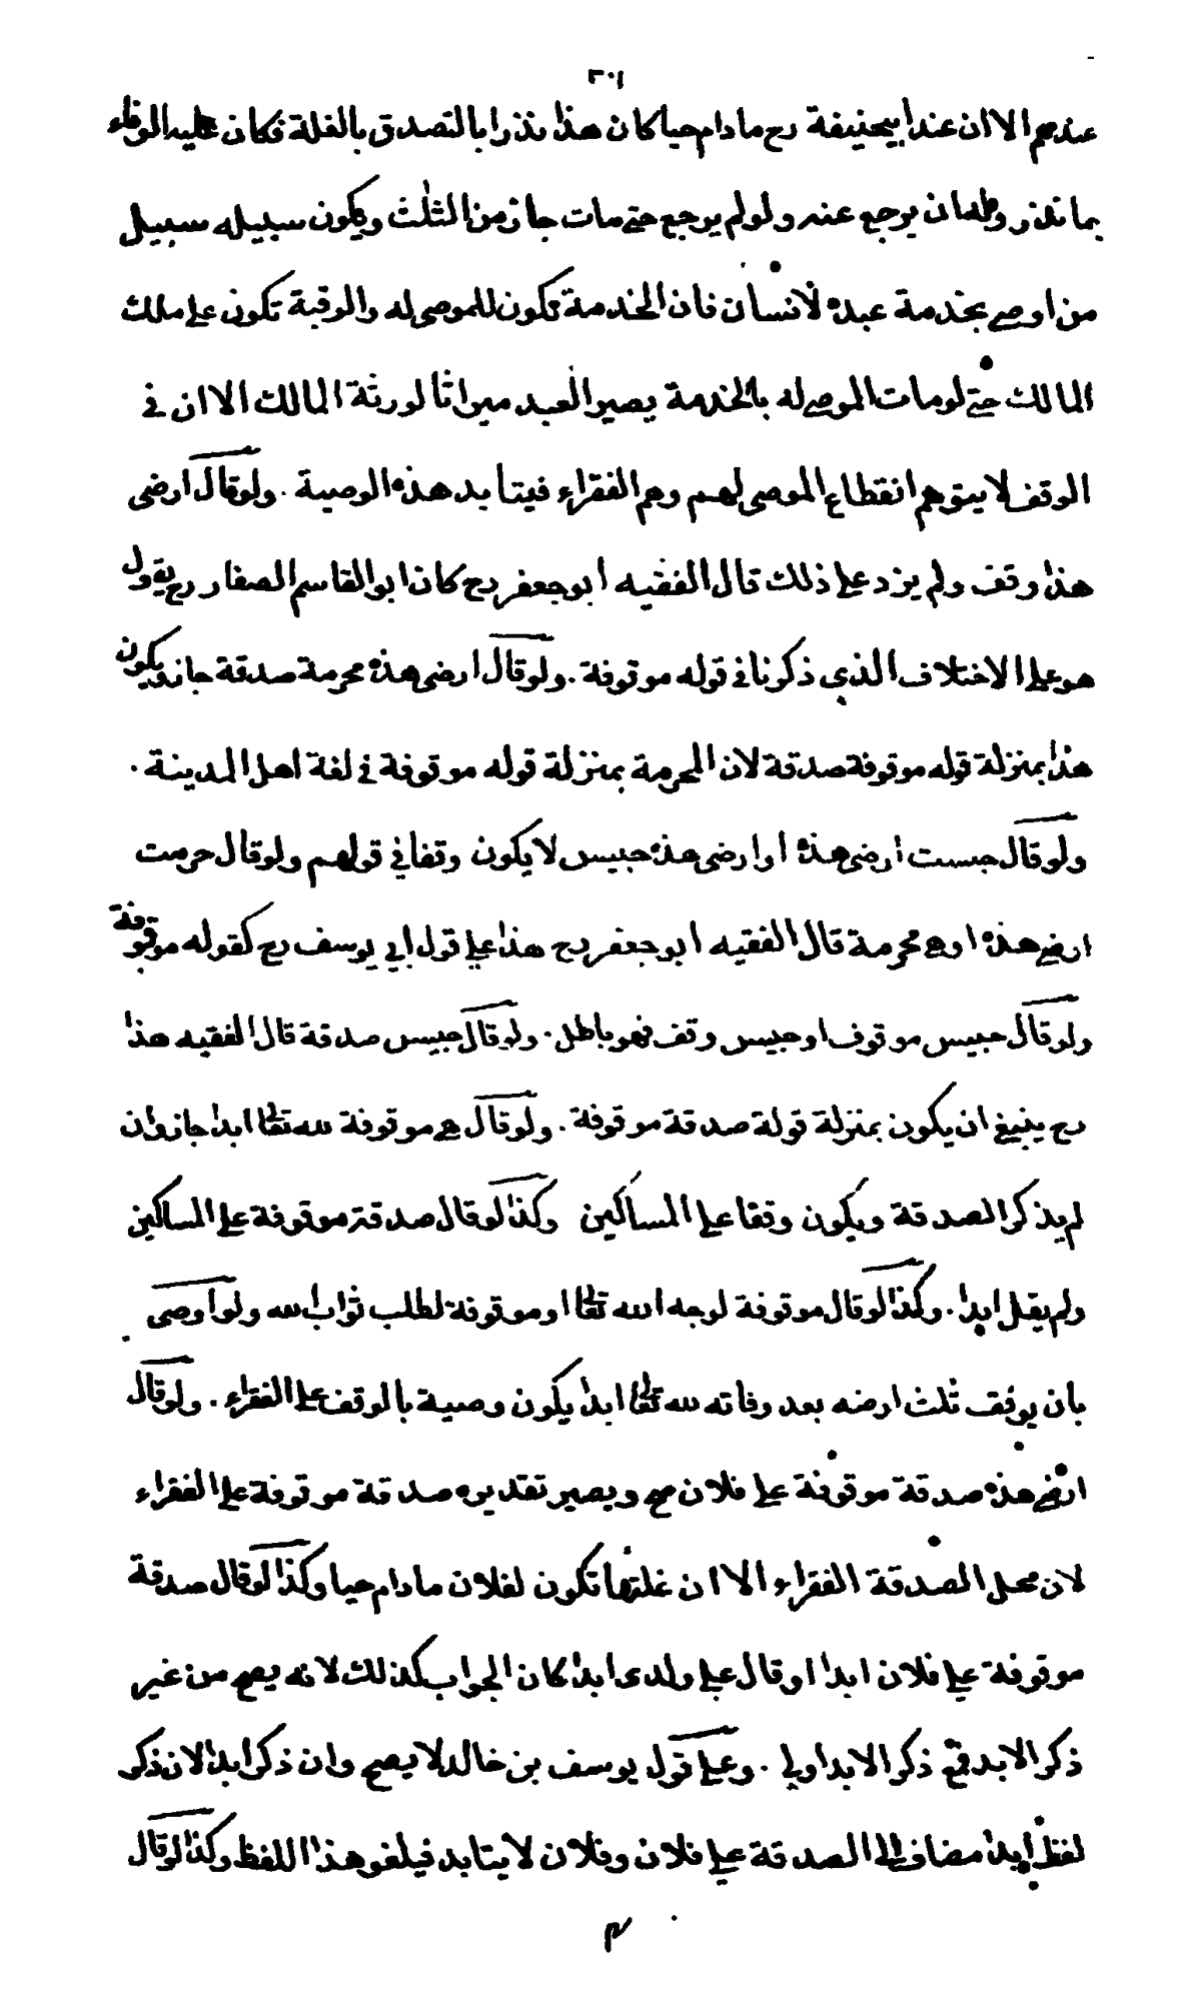 ٣٠١
عندهم الا ان عند ابيحنيفة رح مادام حيا كان هذا نذرا بالتصدق بالغلة فكان عليه الوفاء
بما نذر وله ان يرجع عنه ولو لم يرجع حتى مات جاز من الثلث ويكون سبيله سبيل
من اوصى بخدمة عبده لانسان فان الخدمة تكون للموصى له والرقبة تكون على ملك
المالك حتى لو مات الموصى له بالخدمة يصير العبد ميراثا لورثة المالك الا ان في
الوقف لا يتوهم انقطاع الموصى لهم وهم الفقراء فيتأبد هذه الوصية . ولو قال ارضى
هذا وقف ولم يزد على ذلك قال الفقيه ابو جعفر رح كان ابو القاسم الصفار رح يقول
هو على الاختلاف الذي ذكرنا في قوله موقوفة . ولو قال ارضى هذه محرمة صدقة جاز ويكون
هذا بمنزلة قوله موقوفة صدقة لان المحرمة بمنزلة قوله موقوفة في لغة اهل المدينة .
ولو قال حبست ارضى هذه او ارضى هذه حبيس لا يكون وقفا في قولهم ولو قال حرمت
ارضى هذه او هى محرمة قال الفقيه ابو جعفر رح هذا على قول ابي يوسف رح كقوله موقوفة
ولو قال حبيس موقوف او حبيس وقف فهو باطل . ولو قال حبيس صدقة قال الفقيه هذا
رح ينبغى ان يكون بمنزلة قولة صدقة موقوفة . ولو قال هى موقوفة لله تعالى ابدا جاز وان
لم يذكر الصدقة ويكون وقفا على المساكين وكذا لو قال صدقة موقوفة على المساكين
ولم يقل ابدا . وكذا لو قال موقوفة لوجه الله تعالى او موقوفة لطلب ثواب الله ولو اوصى
بان يوقف ثلث ارضه بعد وفاته لله تعالى ابدا يكون وصية بالوقف على الفقراء . ولو قال
ارضى هذه صدقة موقوفة على فلان صح ويصير تقديره صدقة موقوفة على الفقراء
لان محل الصدقة الفقراء الا ان غلتها تكون لفلان مادام حيا وكذا لو قال صدقة
موقوفة على فلان ابدا او قال على ولدى ابدا كان الجواب كذلك لانه يصح من غير
ذكر الابد فمع ذكر الابد اولى . وعلى قول يوسف بن خالد لا يصح وان ذكر ابدا لان ذكر
لفظ ابدا مضاف الى الصدقة على فلان وفلان لا يتابد فيلغو هذا اللفظ وكذا لو قال